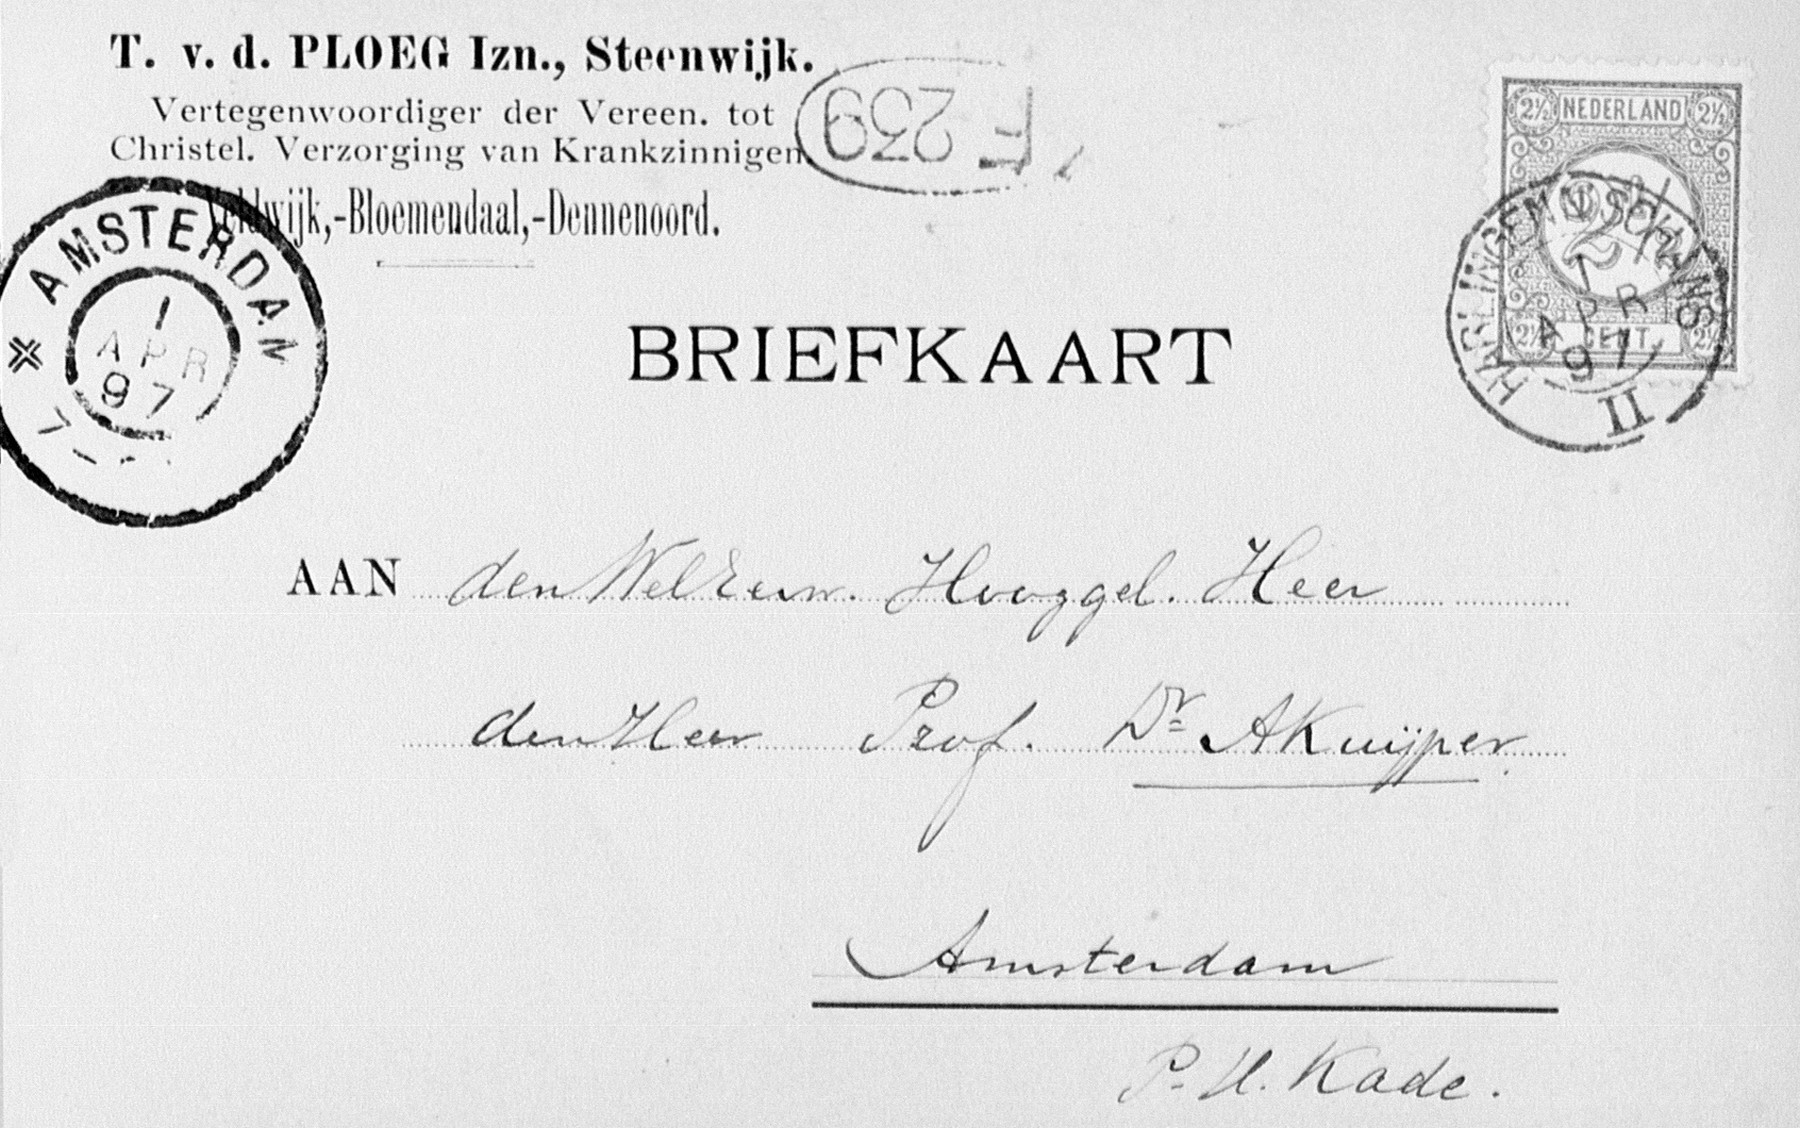 T. v. d. PLOEG Izn., Steenwijk.
Vertegenwoordiger der Vereen. tot
Christel. Verzorging van Krankzinnigen.
Veldwijk,-Bloemendaal,-Dennenoord.
F 239
NEDERLAND
2½ 2½
2½
2½ CENT. 2½
AMSTERDAM
1
APR
97
7
1
APR
97
II
BRIEFKAART
AAN den WelEerw. Hooggel. Heer
den Heer Prof. Dr AKuijper.
Amsterdam
P. H. Kade.